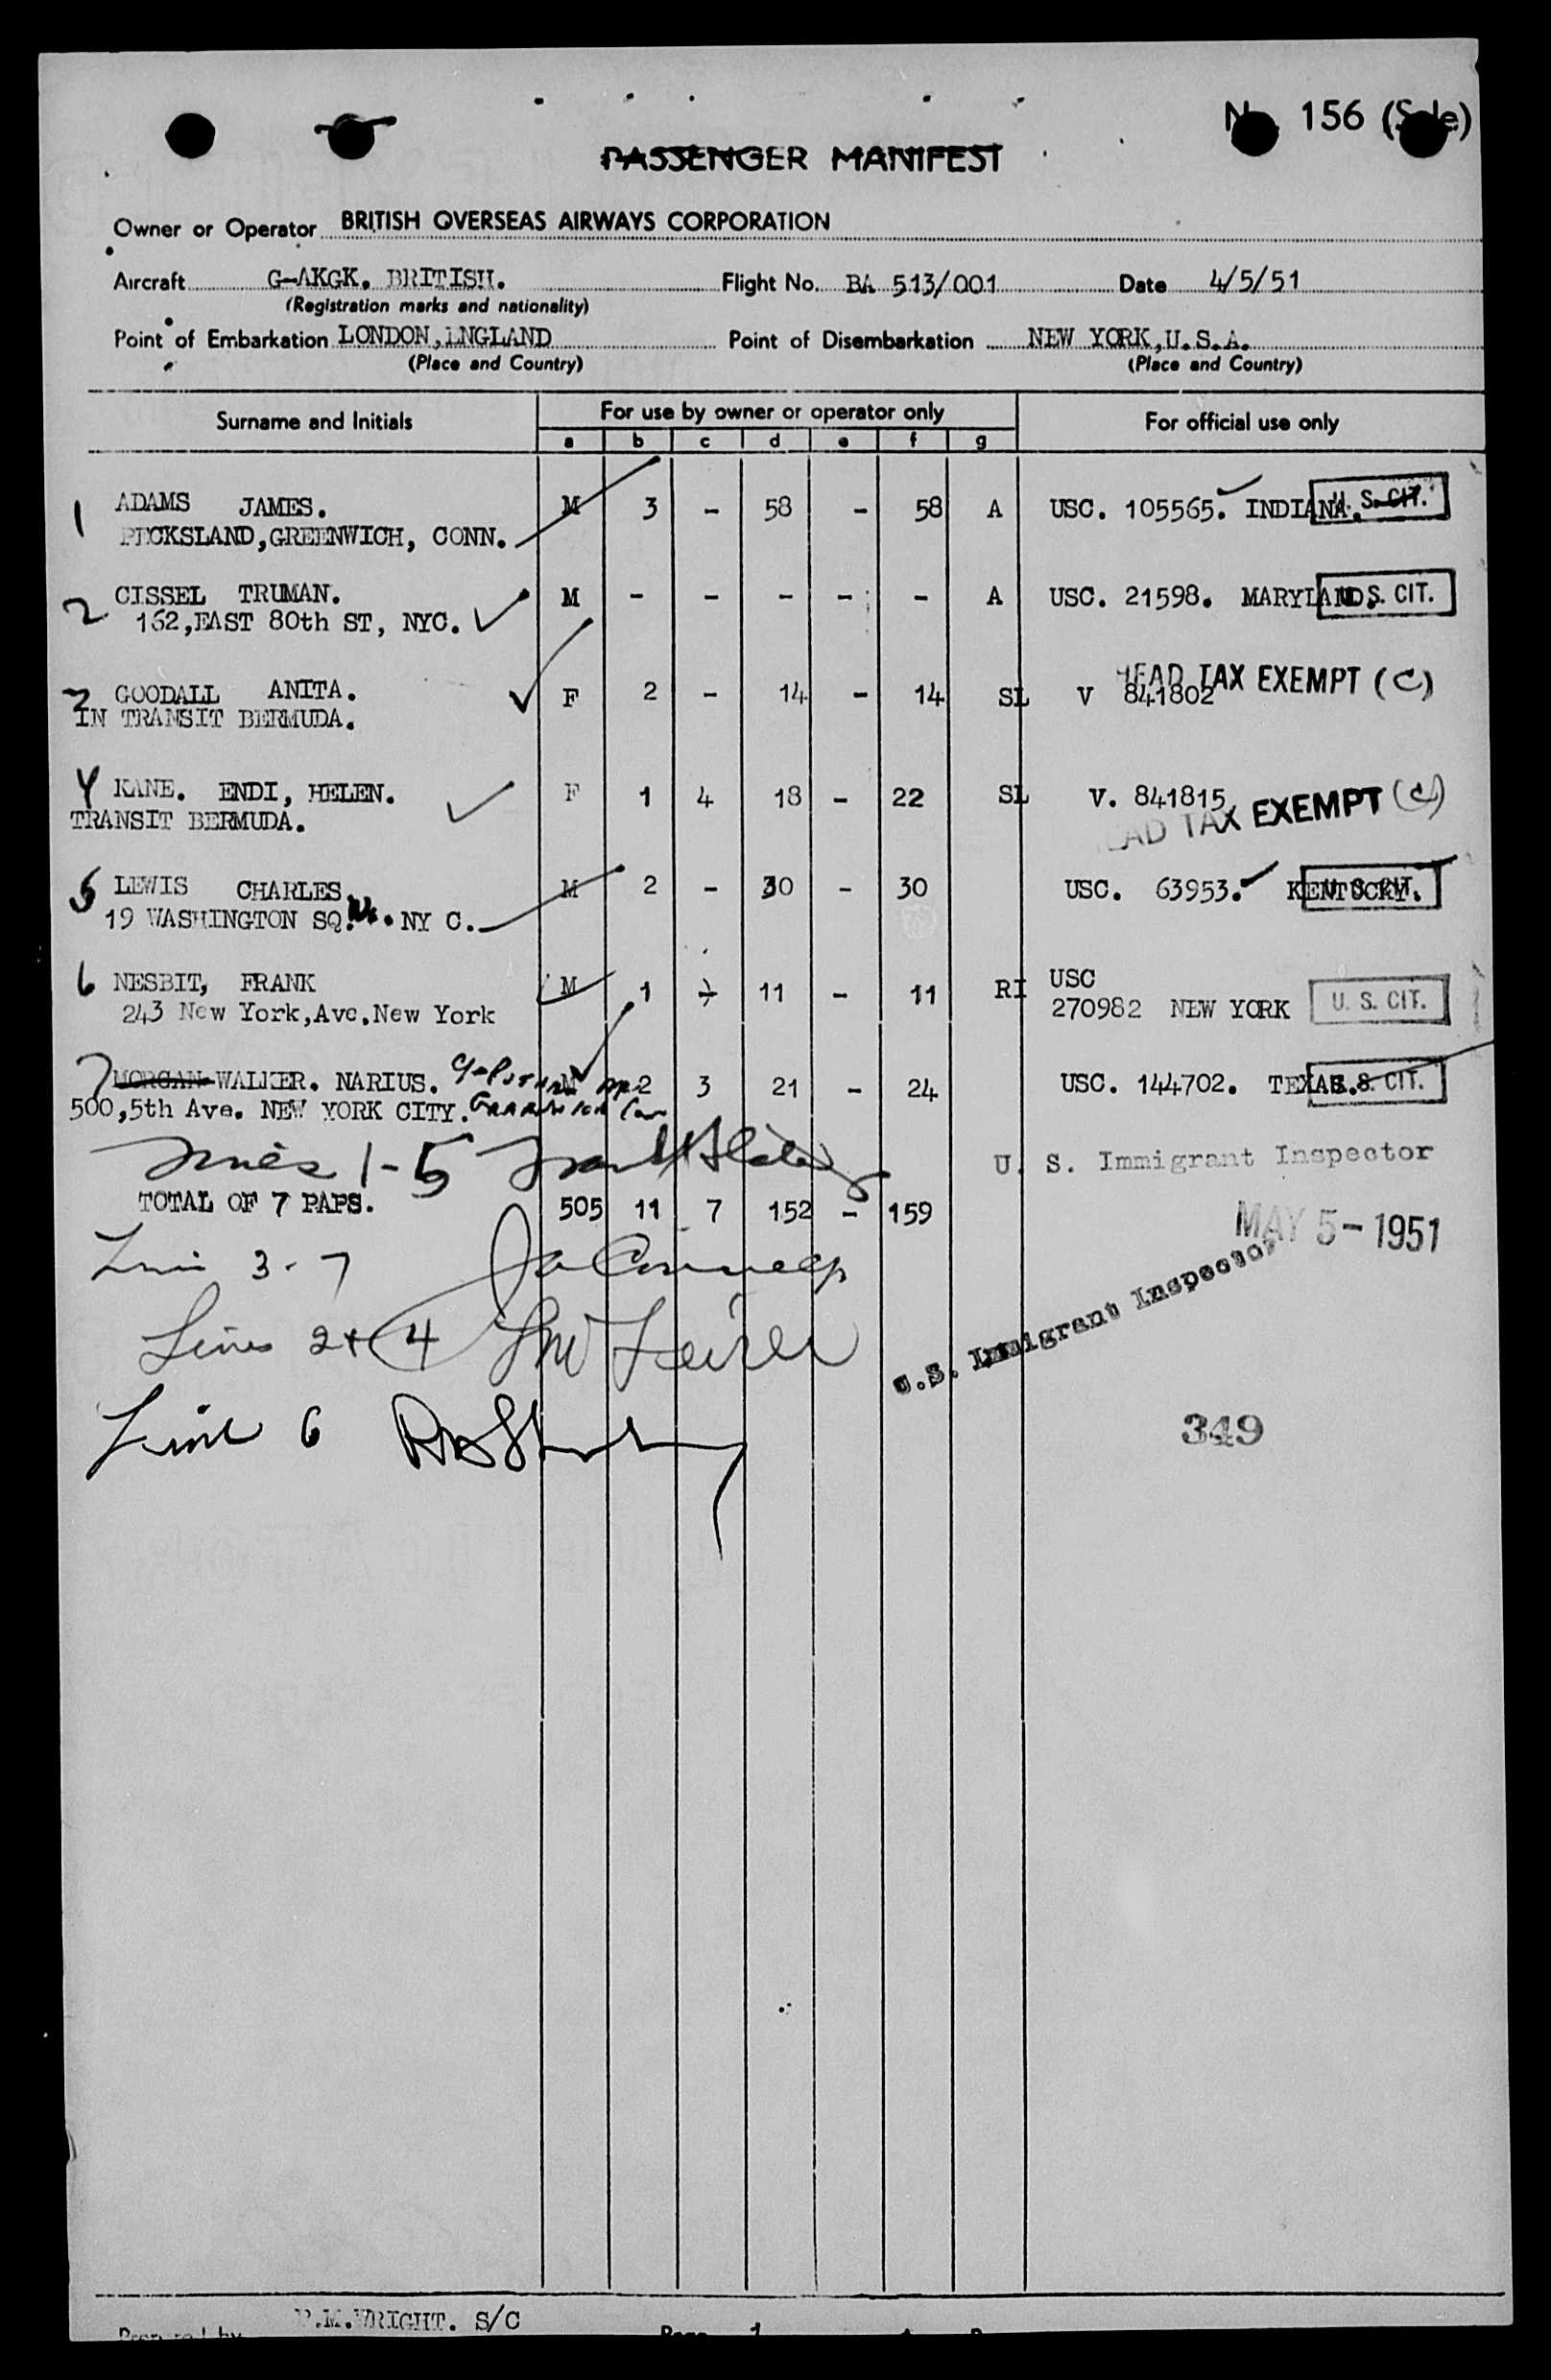 156
PASSENGER MANIFEST
Owner or Operator BRITISH OVERSEAS AIRWAYS CORPORATION
Aircraft G-AKGK. BRITISH. Flight No. BA 513/001 Date 4/5/51
(Registration marks and nationality)
Point of Embarkation LONDON, ENGLAND Point of Disembarkation NEW YORK, U.S.A.
(Place and Country) (Place and Country)
Surname and Initials For use by owner or operator only For official use only
a b c d e f g
1 ADAMS JAMES. M 3 - 58 - 58 A USC. 105565. INDIANA. U. S. CIT.
PECKSLAND, GREENWICH, CONN.
2 CISSEL TRUMAN. M - - - - - A USC. 21598. MARYLAND. U. S. CIT.
162, EAST 80th ST, NYC.
3 GOODALL ANITA. F 2 - 14 - 14 SL V 841802 HEAD TAX EXEMPT (C)
IN TRANSIT BERMUDA.
4 KANE. ENDI, HELEN. F 1 4 18 - 22 SL V. 841815
TRANSIT BERMUDA. HEAD TAX EXEMPT (C)
5 LEWIS CHARLES M 2 - 30 - 30 USC. 63953. KENTUCKY. U. S. CIT.
19 WASHINGTON SQ. NY C.
6 NESBIT, FRANK M 1 - 11 - 11 RI USC
243 New York, Ave, New York 270982 NEW YORK U. S. CIT.
7 MORGAN WALKER. NARIUS. M 2 3 21 - 24 USC. 144702. TEXAS. U. S. CIT.
500, 5th Ave. NEW YORK CITY.
Lines 1-5
U. S. Immigrant Inspector
TOTAL OF 7 PAPS. 505 11 7 152 - 159
MAY 5 - 1951
Line 3-7
U.S. Immigrant Inspector
Lines 2 + 4
349
Line 6
.M.WRIGHT. S/C
Prepared by Page 1